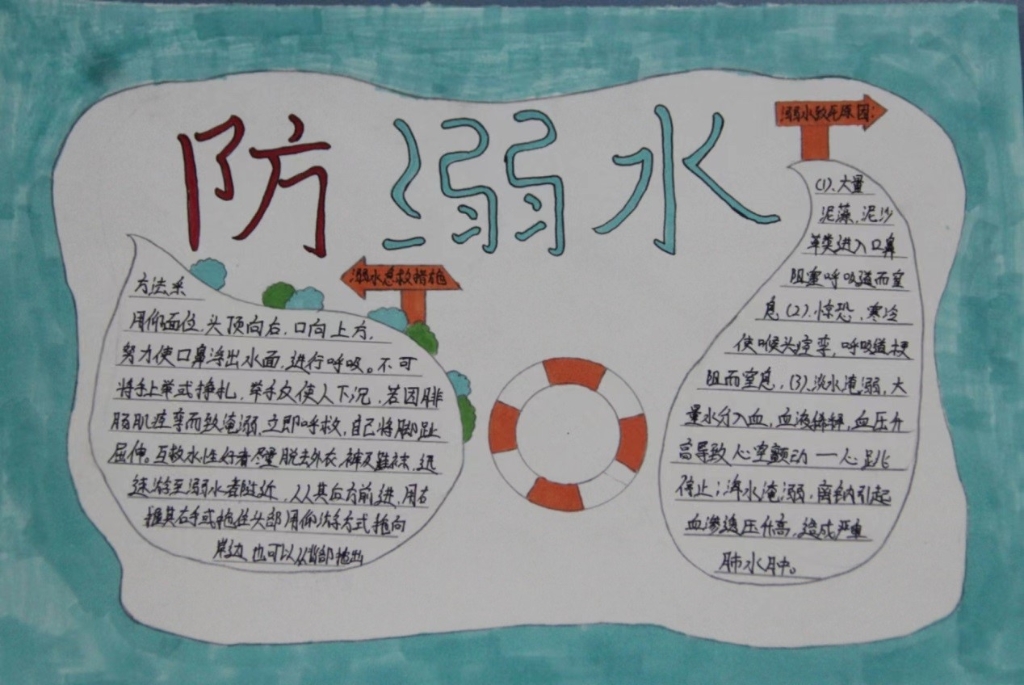 防溺水
溺水急救措施
方法系
用仰面位,头顶向右,口向上方,
努力使口鼻浮出水面,进行呼吸。不可
将手上举式挣扎,举手反使人下沉,若因腓
肠肌痉挛而致淹溺,立即呼救,自己将脚趾
屈伸。互救水性好者尽量脱去外衣,裤及鞋袜,迅
速游至溺水者附近,从其后方前进,用右
握其右手或抱住头部用仰泳方式拖向
岸边,也可以从背部抱
溺水致死原因:
(1).大量
泥藻,泥沙
草类进入口鼻
阻塞呼吸道而窒
息(2).惊恐,寒冷
使喉头痉挛,呼吸道梗
阻而窒息,(3).淡水淹溺,大
量水分入血,血液稀释,血压升
高导致心室颤动一心跳
停止;海水淹溺,高钠引起
血渗透压升高,造成严重
肺水肿。